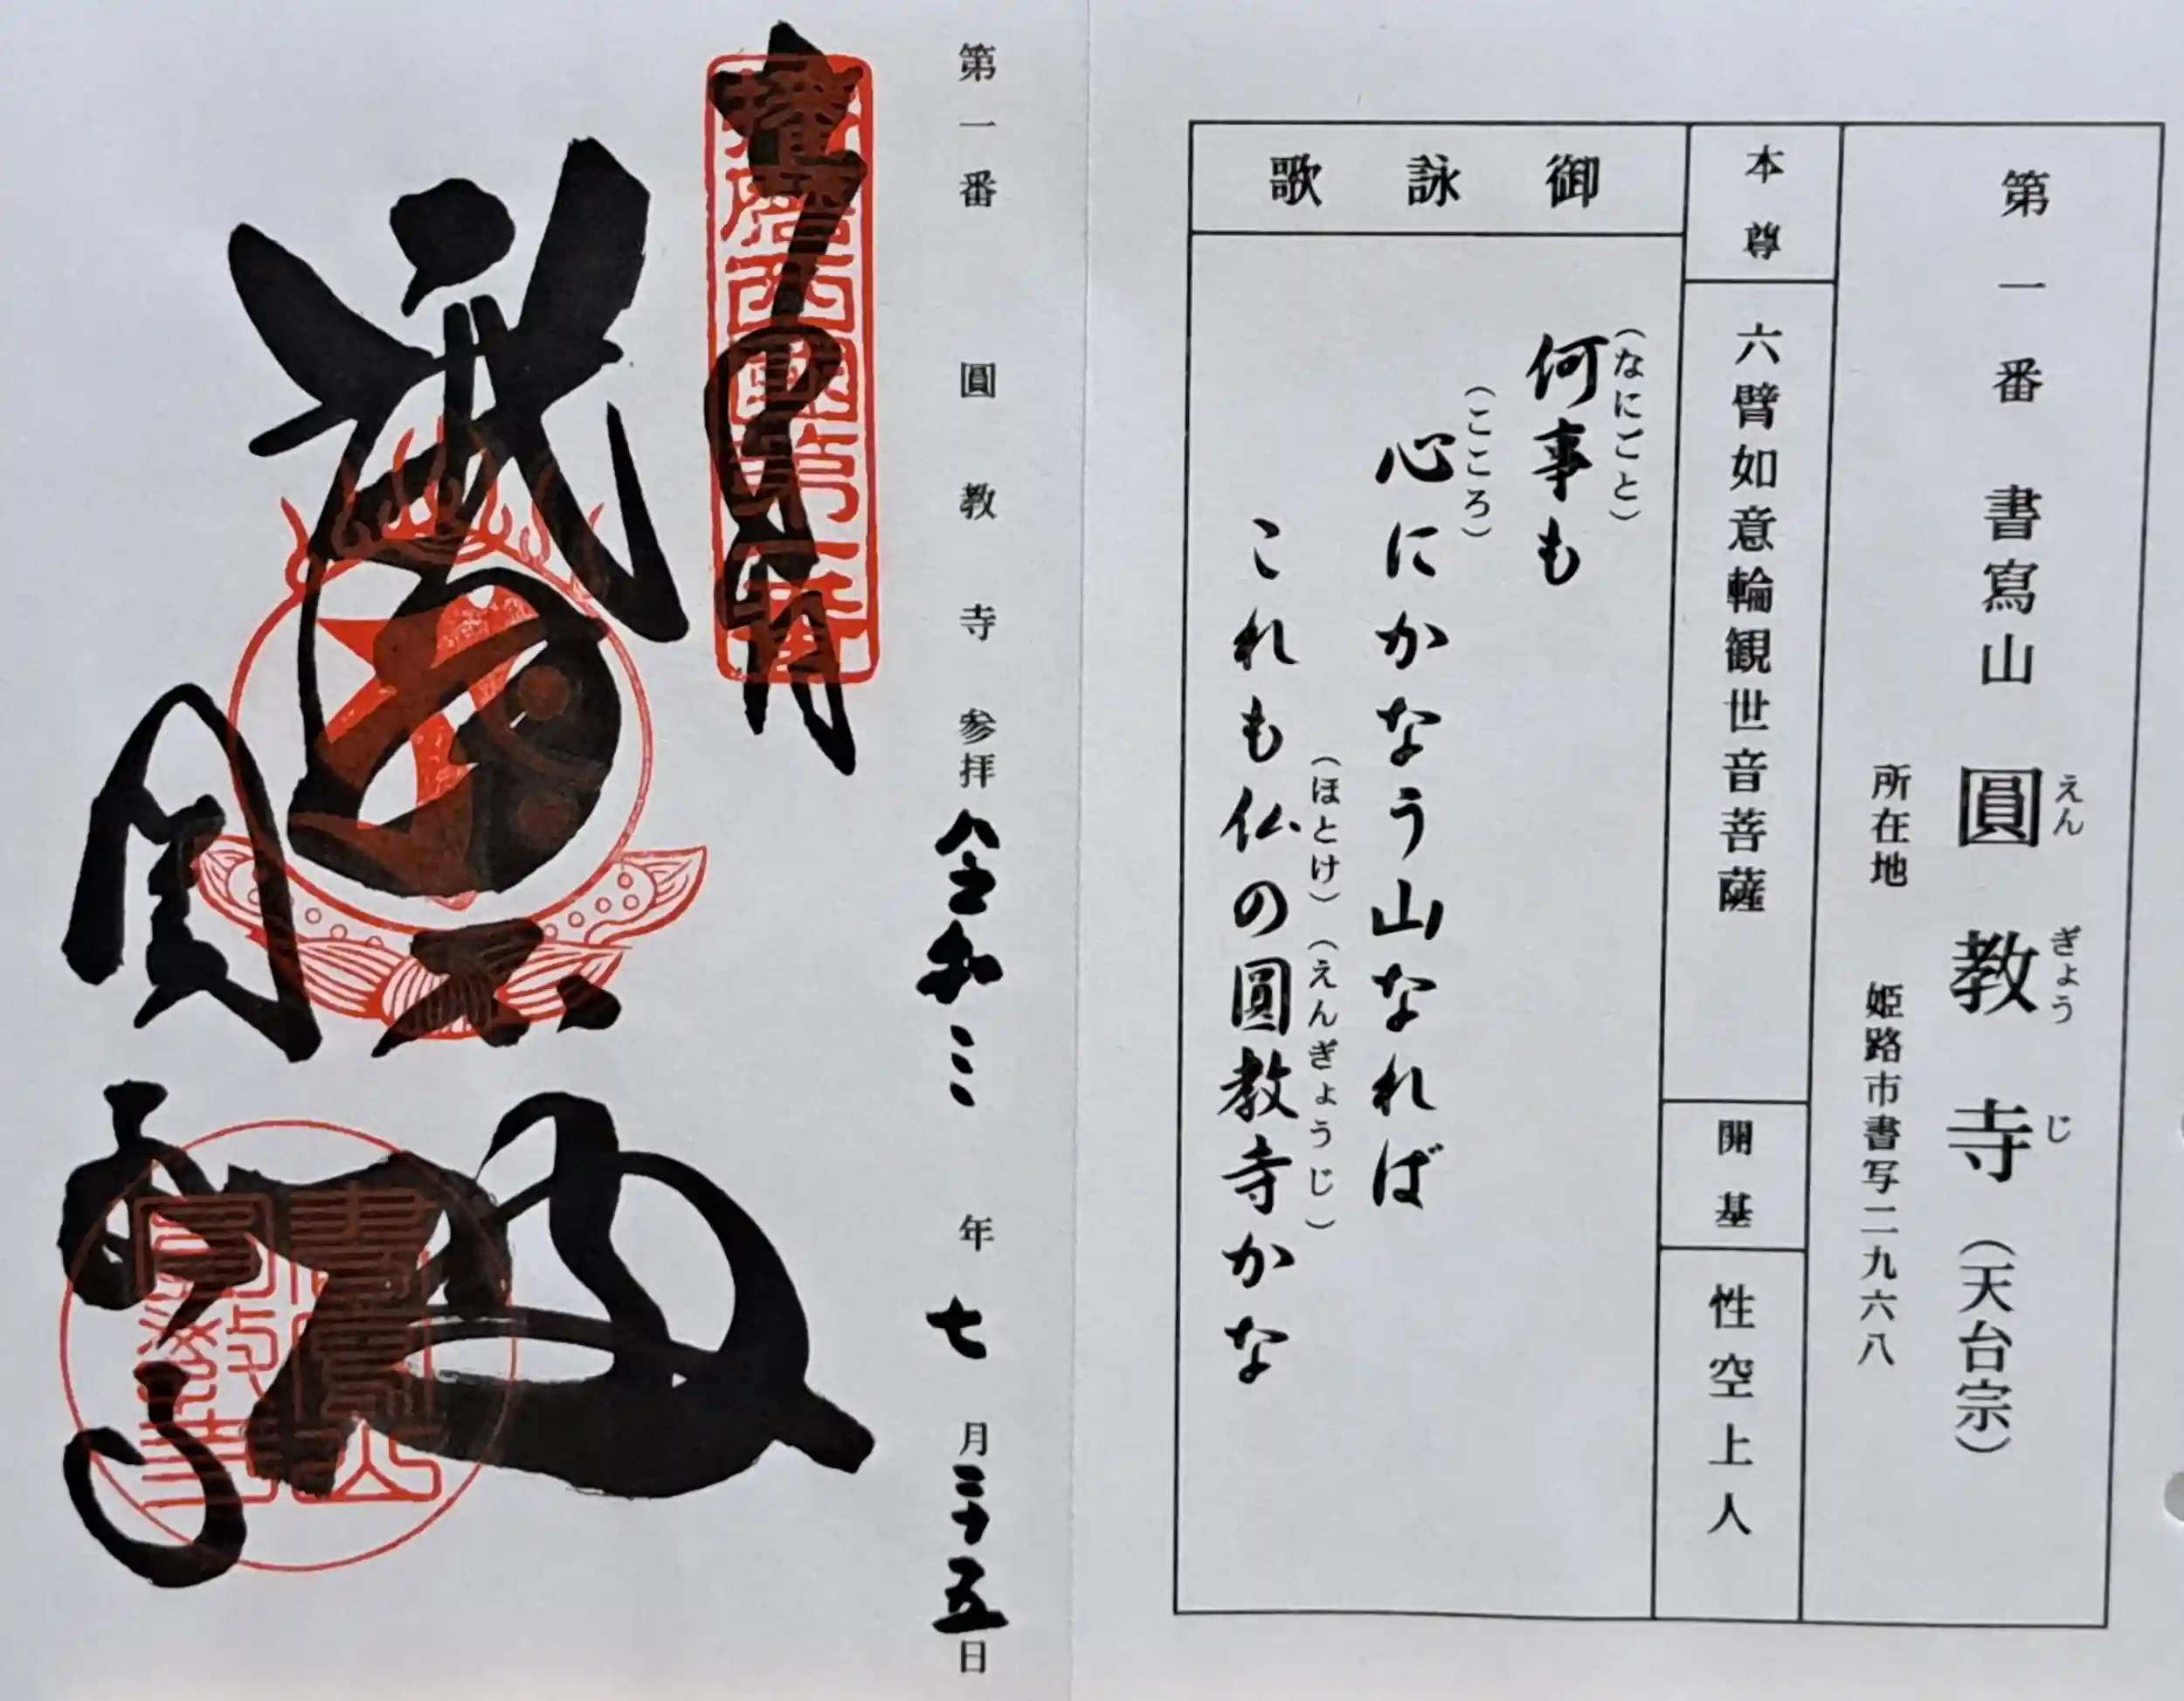 第一番 書寫山 圓教寺(天台宗)
えんぎょうじ
所在地 姫路市書写二九六八
本尊
六臂如意輪観世音菩薩
開基
性空上人
御詠歌
何事も
(なにごと)
心にかなう山なれば
(こころ)
これも仏の圓教寺かな
(ほとけ)(えんぎょうじ)
第一番 圓教寺 参拝 令和三年七月二十五日
奉拝
播磨西國第一番
圓教寺
書寫山圓教寺